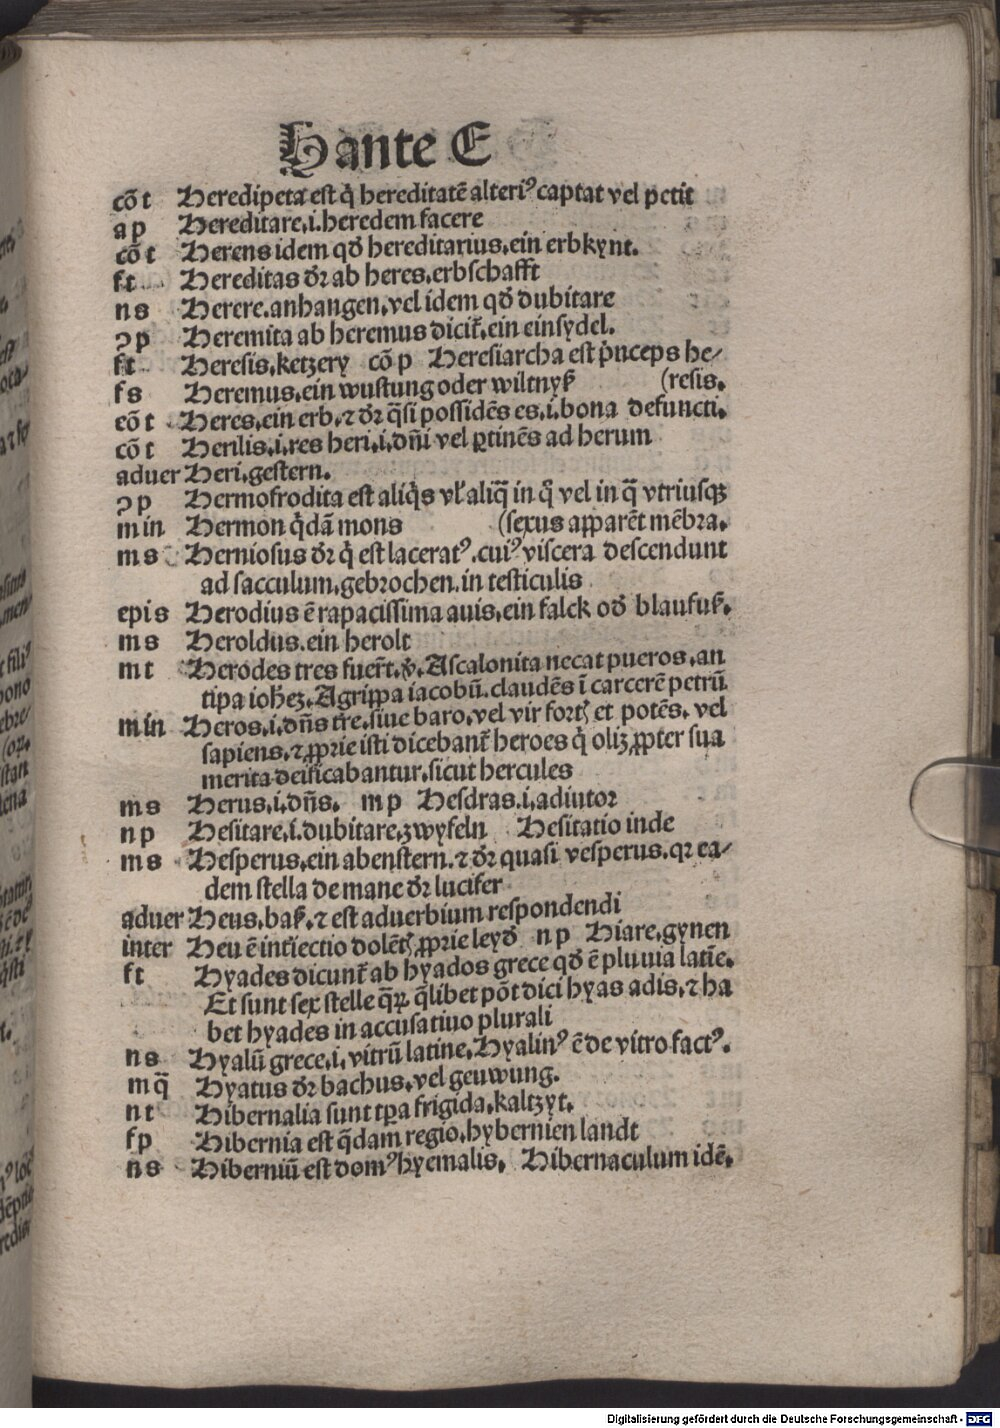 H ante E
cō t Heredipeta est q̇ hereditatē alteriꝰ captat vel petit
a p Hereditare.i.heredem facere
cō t Herens idem qđ hereditarius.ein erbkynt.
f t Hereditas đr ab heres.erbschafft
n s Herere.anhangen.vel idem qđ dubitare
ꝯ p Heremita ab heremus dicit̄.ein einsydel.
f t Heresis.ketzery cō p Heresiarcha est ṗnceps he⸗
f s Heremus.ein wustung oder wiltnyß (resis.
cō t Heres.ein erb.⁊ đr q̄si possidēs es.i.bona defuncti.
cō t Herilis.i.res heri.i.dn̄i vel ꝑtinēs ad herum
aduer Heri.gestern.
ꝯ p Hermofrodita est aliq̇s vl̵ aliq̄ in q̇ vel in q̄ vtriusqꝫ
m in Hermon q̇dā mons (sexus apparēt mēbra.
m s Herniosus đr q̇ est laceratꝰ.cuiꝰ viscera descendunt
ad sacculum.gebrochen.in testiculis
epi s Herodius ē rapacissima auis.ein falck ođ blaufuß.
m s Heroldus.ein herolt
m t Herodes tres fuer̄t.v̇.Ascalonita necat pueros.an
tipa ioħeꝫ.Agrippa iacobū.claudēs ī carcerē petrū
m in Heros.i.dn̄s tr̄e.siue baro.vel vir fortꝭ et potēs.vel
sapiens.⁊ ꝓprie isti dicebant̄ heroes q̇ olīꝫ ꝓpter sua
merita deificabantur.sicut hercules
m s Herus.i.dn̄s. m p Hesdras.i.adiutor
n p Hesitare.i.dubitare.zwyfeln Hesitatio inde
m s Hesperus.ein abenstern.⁊ đr quasi vesperus.qꝛ ea⸗
dem stella de mane đr lucifer
aduer Heus.baß.⁊ est aduerbium respondendi
inter Heu ē int̓iectio dolētꝭ ꝓprie leyđ n p Hiare.gynen
f t Hyades dicunt̄ ab hyados grece qđ ē pluuia latīe.
Et sunt sex stelle q̄ꝝ q̄libet pōt dici hyas adis.⁊ ha
bet hyades in accusatiuo plurali
n s Hyalū grece.i.vitrū latine.Hyalinꝰ ē de vitro factꝰ.
m q̄ Hyatus đr bachus.vel geuwung.
n t Hibernalia sunt tꝑa frigida.kaltzyt.
f p Hibernia est q̄dam regio.hybernien landt
n s Hiberniū est domꝰ hyemalis. Hibernaculum idē.
Digitalisierung gefördert durch die Deutsche Forschungsgemeinschaft - DFG